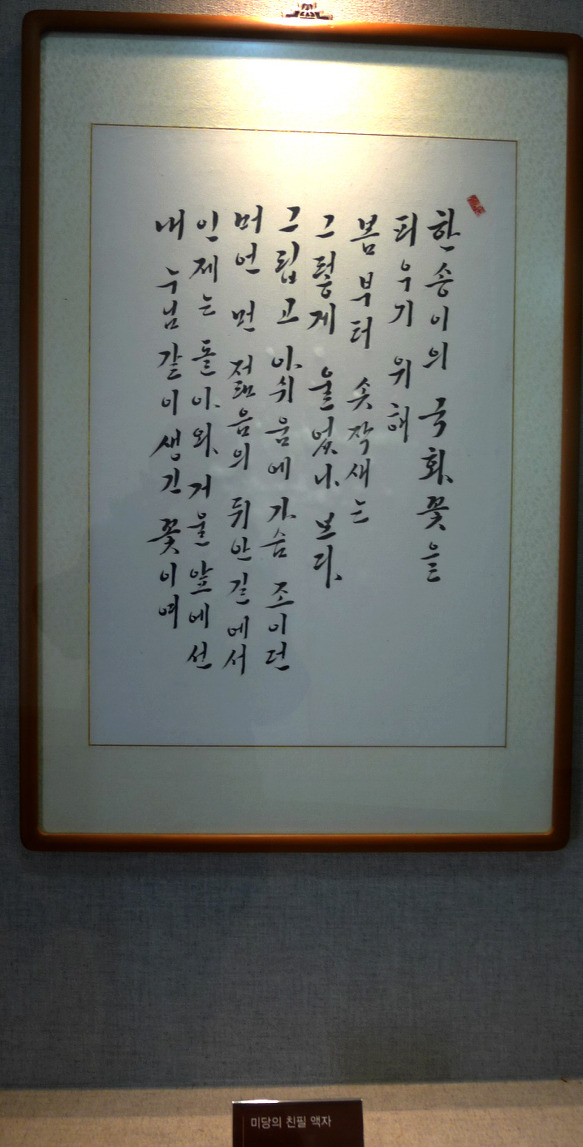 한 송이의 국화꽃을
피우기 위해
봄부터 솟작새는
그렇게 울었나 보다
그립고 아쉬움에 가슴 조이던
머언 먼 젊음의 뒤안길에서
인제는 돌아와 거울 앞에 선
내 누님 같이 생긴 꽃이여
미당의 친필 액자